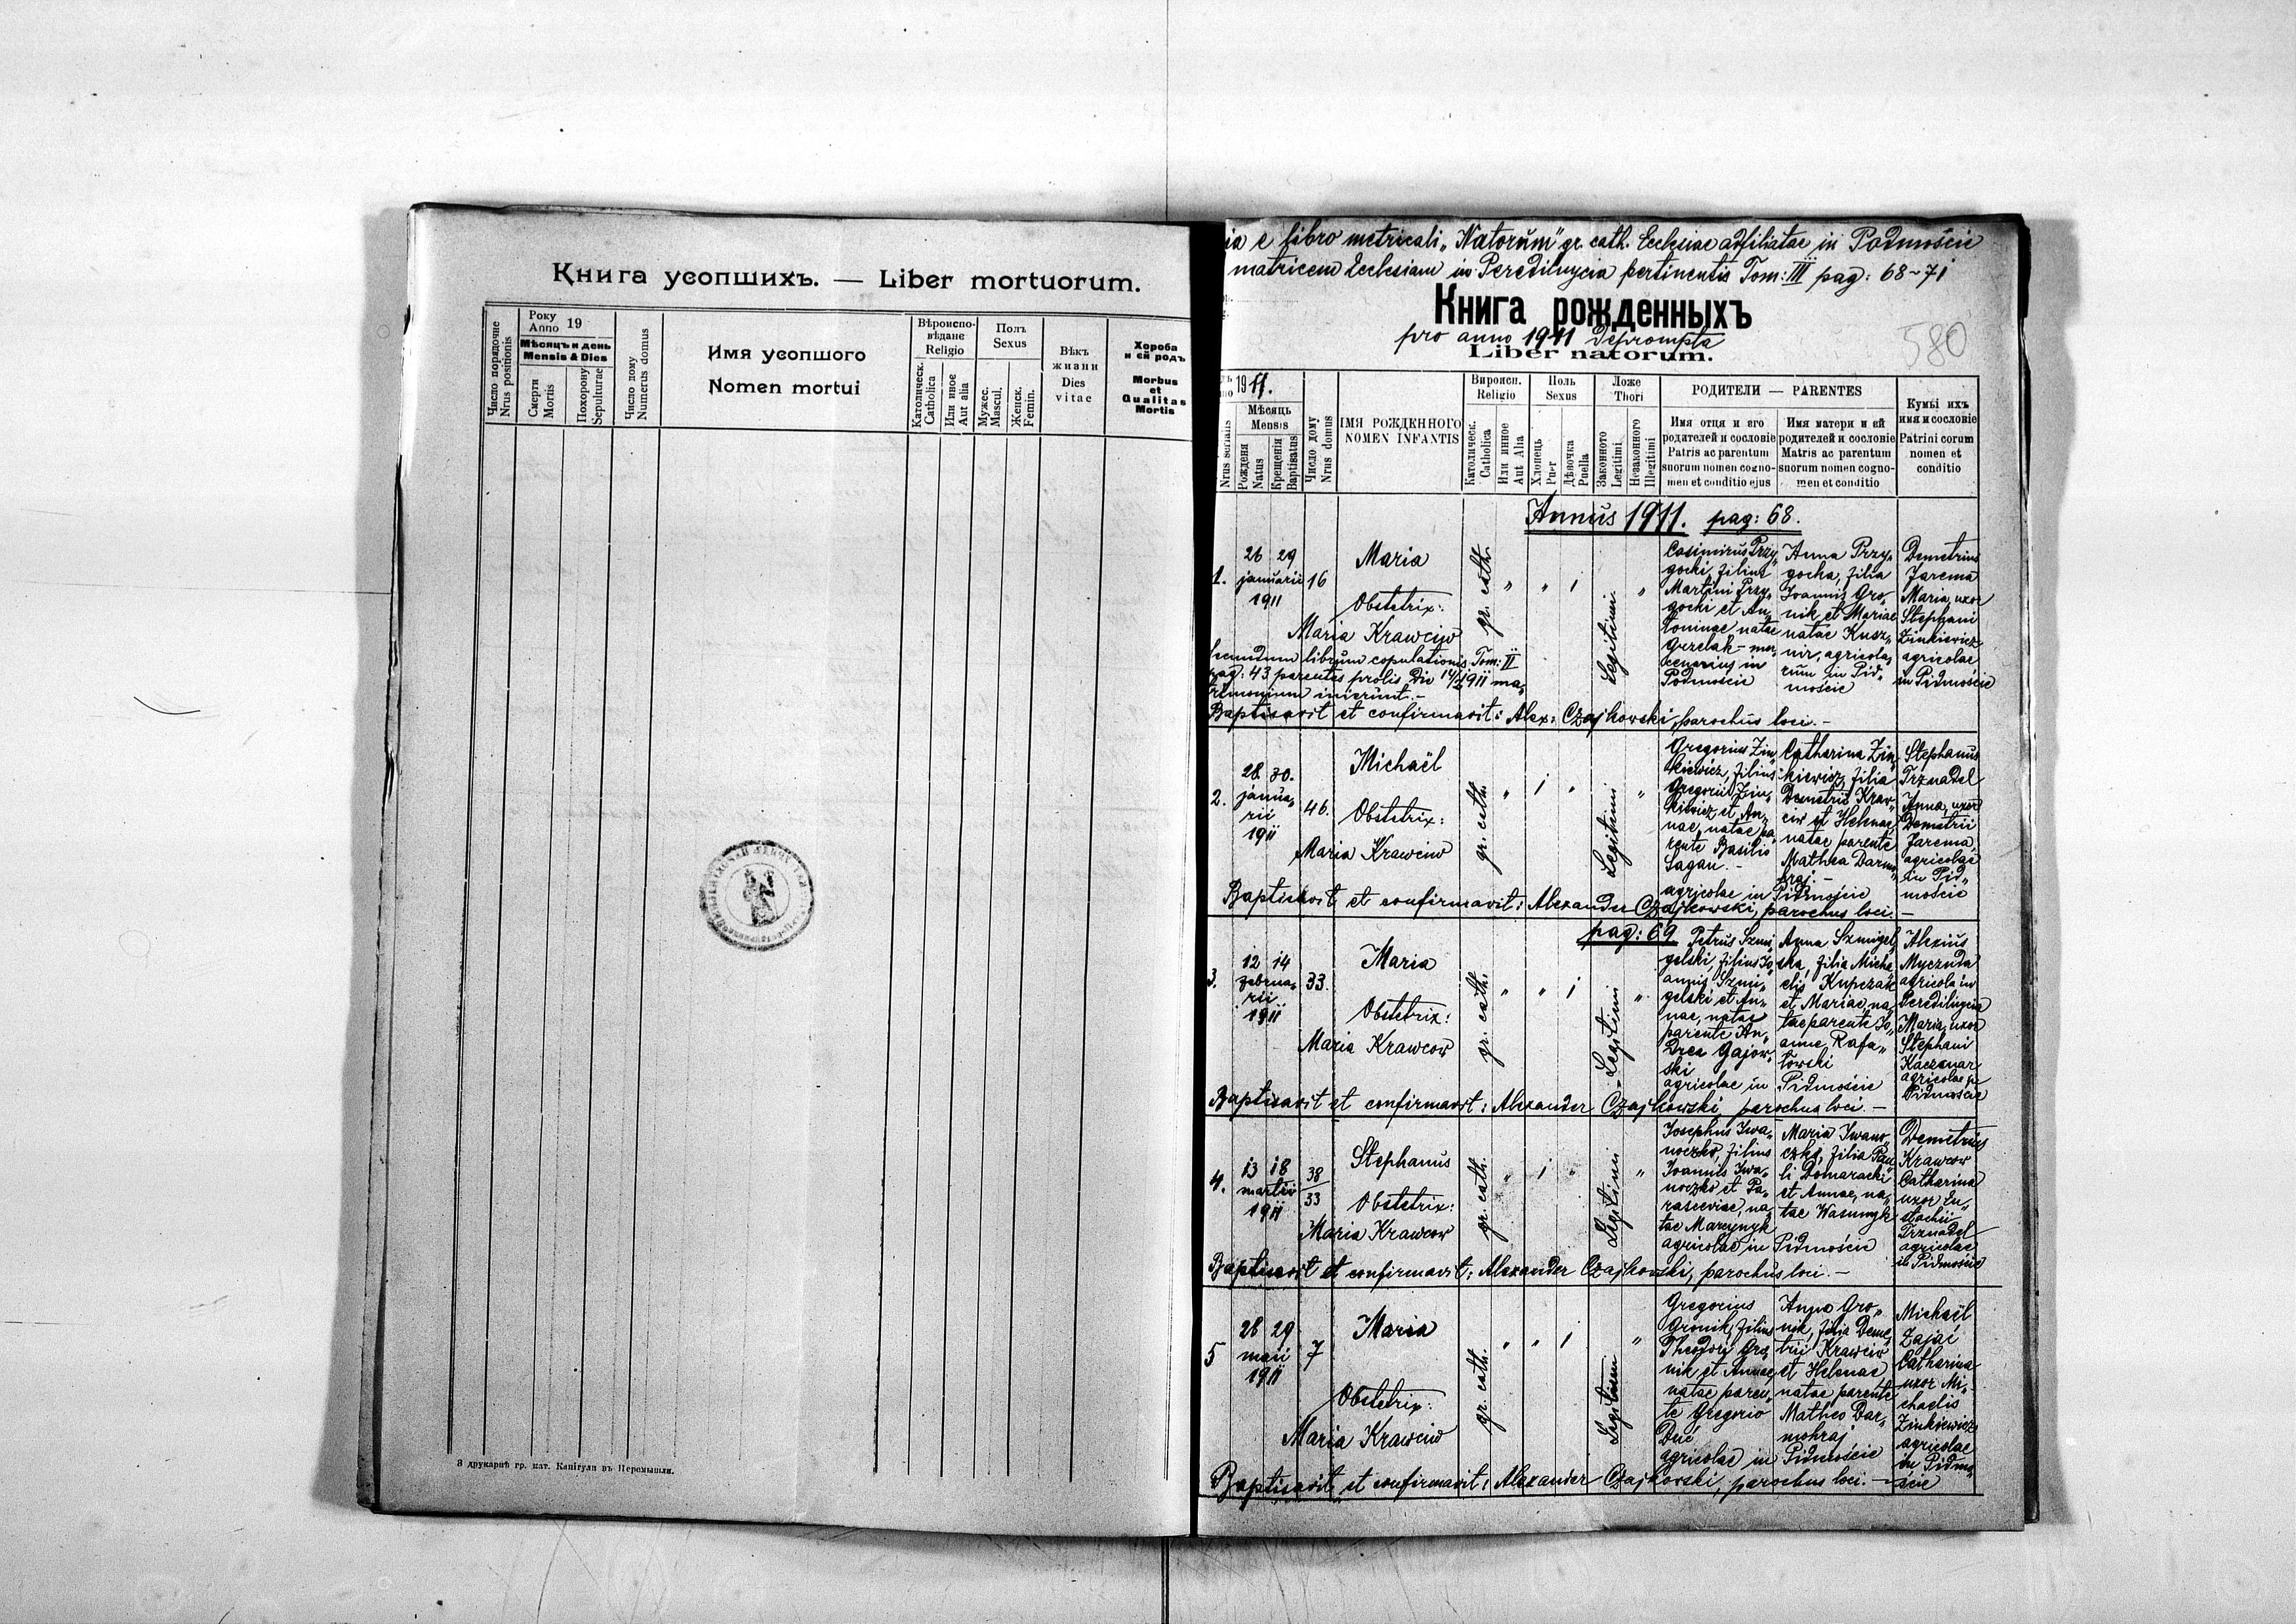 Книга усопшихъ. — Liber mortuorum.
Число порядочне
Nrus positionis
Року
Anno 19
Мѣсяцъ и день
Mensis & Dies
Смерти
Mortis
Похорону
Sepulturae
Число дому
Numerus domus
Имя усопшого
Nomen mortui
Вѣроиспо-
вѣдане
Religio
Католическ.
Catholica
Или иное
Aut alia
Полъ
Sexus
Мужес.
Mascul.
Женск.
Femin.
Вѣкъ
жизни
Dies
vitae
Хороба
и ей родъ
Morbus
et
Qualitas
Mortis
З друкарнѣ гр. кат. Капітули въ Перемышли.
ia e libro metricali „Natorum" gr. cath. Ecclesiae adfiliatae in Podmoście
matricem Ecclesiam in Peredilnycia pertinentis Tom: III pag: 68-71
Книга рожденныхъ
pro anno 1911 deprompta
Liber natorum.
580
1911.
Nrus serialis
Мѣсяць
Mensis
Рожденя
Natus
Крещеня
Baptisatus
Число дому
Nrus domus
ИМЯ РОЖДЕННОГО
NOMEN INFANTIS
Вироисп.
Religio
Католическ.
Catholica
Или инное
Aut Alia
Поль
Sexus
Хлопець
Puer
Дѣвочка
Puella
Ложе
Thori
Законного
Legitimi
Незаконного
Illegitimi
РОДИТЕЛИ — PARENTES
Имя отця и его
родителей и сословіе
Patris ac parentum
suorum nomen cogno-
men et conditio ejus
Имя матери и ей
родителей и сословіе
Matris ac parentum
suorum nomen cogno-
men et conditio
Кумы ихъ
имя и сословіе
Patrini eorum
nomen et
conditio
Annus 1911. pag: 68.
1.
26 29
januarii
1911
16
Maria
Obstetrix:
Maria Krawciw
gr. cath.
" " 1
Legitimi
"
Casimirus Przy-
gocki, filius
Martini Przy-
gocki et An-
toninae natae
Grzelak - mer-
cenarius in
Podmoście
Anna Przy-
gocka, filia
Joannis Gro-
nik et Mariae
natae Kusz-
nir, agricola-
rum in Pid-
moście
Demetrius
Jarema
Maria, uxor
Stephani
Zinkiewicz
agricolae
in Pidmoście
Secundum librum copulationis Tom: II
pag: 43 parentes prolis die 14/2 1911 ma-
trimonium inierunt. -
Baptisavit et confirmavit: Alex: Czajkowski, parochus loci. -
2.
28 30.
janua-
rii
1911
46.
Michaël
Obstetrix:
Maria Krawciw
gr. cath.
" 1 "
Legitimi
"
Gregorius Zin-
kiewicz, filius
Gregorii Zin-
kiewicz et An-
nae, natae pa-
rente Basilio
Sagan. -
Catharina Zin-
kiewicz, filia
Demetrii Kraw-
ciw et Helenae,
natae parente
Mathea Darmo-
hraj. -
agricolae in Pidmoście
Stephanus
Trznadel
Anna, uxor
Demetrii
Jarema,
agricolae
in Pid-
moście
Baptisavit et confirmavit: Alexander Czajkowski, parochus loci. -
pag: 69
3.
12 14
februa-
rii
1911
33.
Maria
Obstetrix:
Maria Krawcow
gr. cath.
" " 1
Legitimi
"
Petrus Szmi-
gelski, filius Jo-
annis Szmi-
gelski et An-
nae, natae
parente An-
drea Gajow-
ski
Anna Szmigel-
ska, filia Micha-
elis Kupczak
et Mariae, na-
tae parente Jo-
anne Rafa-
łowski
agricolae in Pidmoście
Alexius
Myczuda
agricola in
Peredilnycia
Maria, uxor
Stephani
Kaczmar
agricolae in
Pidmoście
Baptisavit et confirmavit: Alexander Czajkowski, parochus loci. -
4.
13 18
martii
1911
38
33
Stephanus
Obstetrix:
Maria Krawcow
gr. cath.
" 1 "
Legitimi
"
Josephus Iwa-
noczko, filius
Joannis Iwa-
noczko et Pa-
rasceviae, na-
tae Marcynyk
Maria Iwano-
czko, filia Pau-
li Domaracki
et Annae, na-
tae Wasunyk
agricolae in Pidmoście
Demetrius
Krawcow
Catharina
uxor Eu-
stachii
Trznadel
agricolae
in Pidmoście
Baptisavit et confirmavit: Alexander Czajkowski, parochus loci. -
5
28 29
maii
1911
7
Maria
Obstetrix:
Maria Krawciw
gr. cath.
" " 1
Legitimi
"
Gregorius
Gronik, filius
Theodori Gro-
nik et Annae,
natae paren-
te Gregorio
Duć
Anna Gro-
nik, filia Deme-
trii Krawciw
et Helenae
natae parente
Matheo Dar-
mohraj
agricolae in Pidmoście
Michaël
Zając
Catharina
uxor Mi-
chaelis
Zinkiewicz
agricolae
in Pidmo-
ście
Baptisavit et confirmavit: Alexander Czajkowski, parochus loci. -